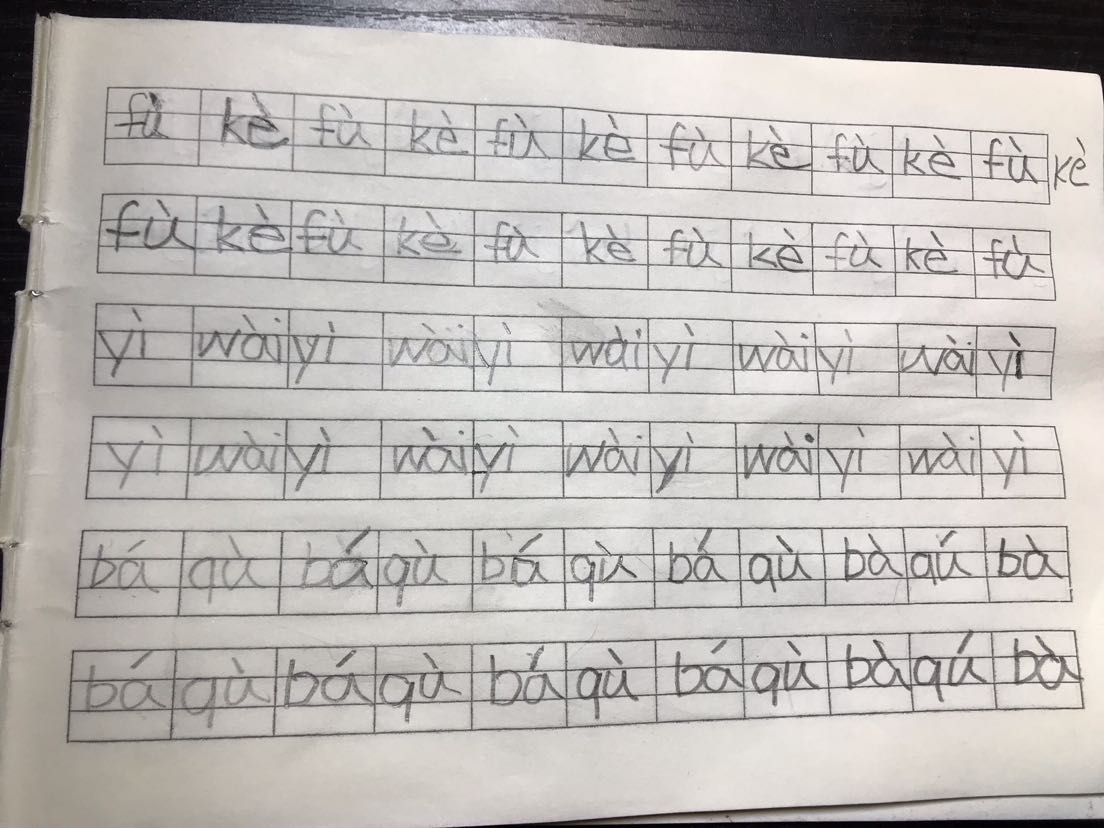 fù kè fù kè fù kè fù kè fù kè fù kè
fù kè fù kè fù kè fù kè fù kè fù
yì wài yì wài yì wài yì wài yì wài yì
yì wài yì wài yì wài yì wài yì wài yì
bá qù bá qù bá qù bá qù bà qú bà
bá qù bá qù bá qù bá qù bà qú bà